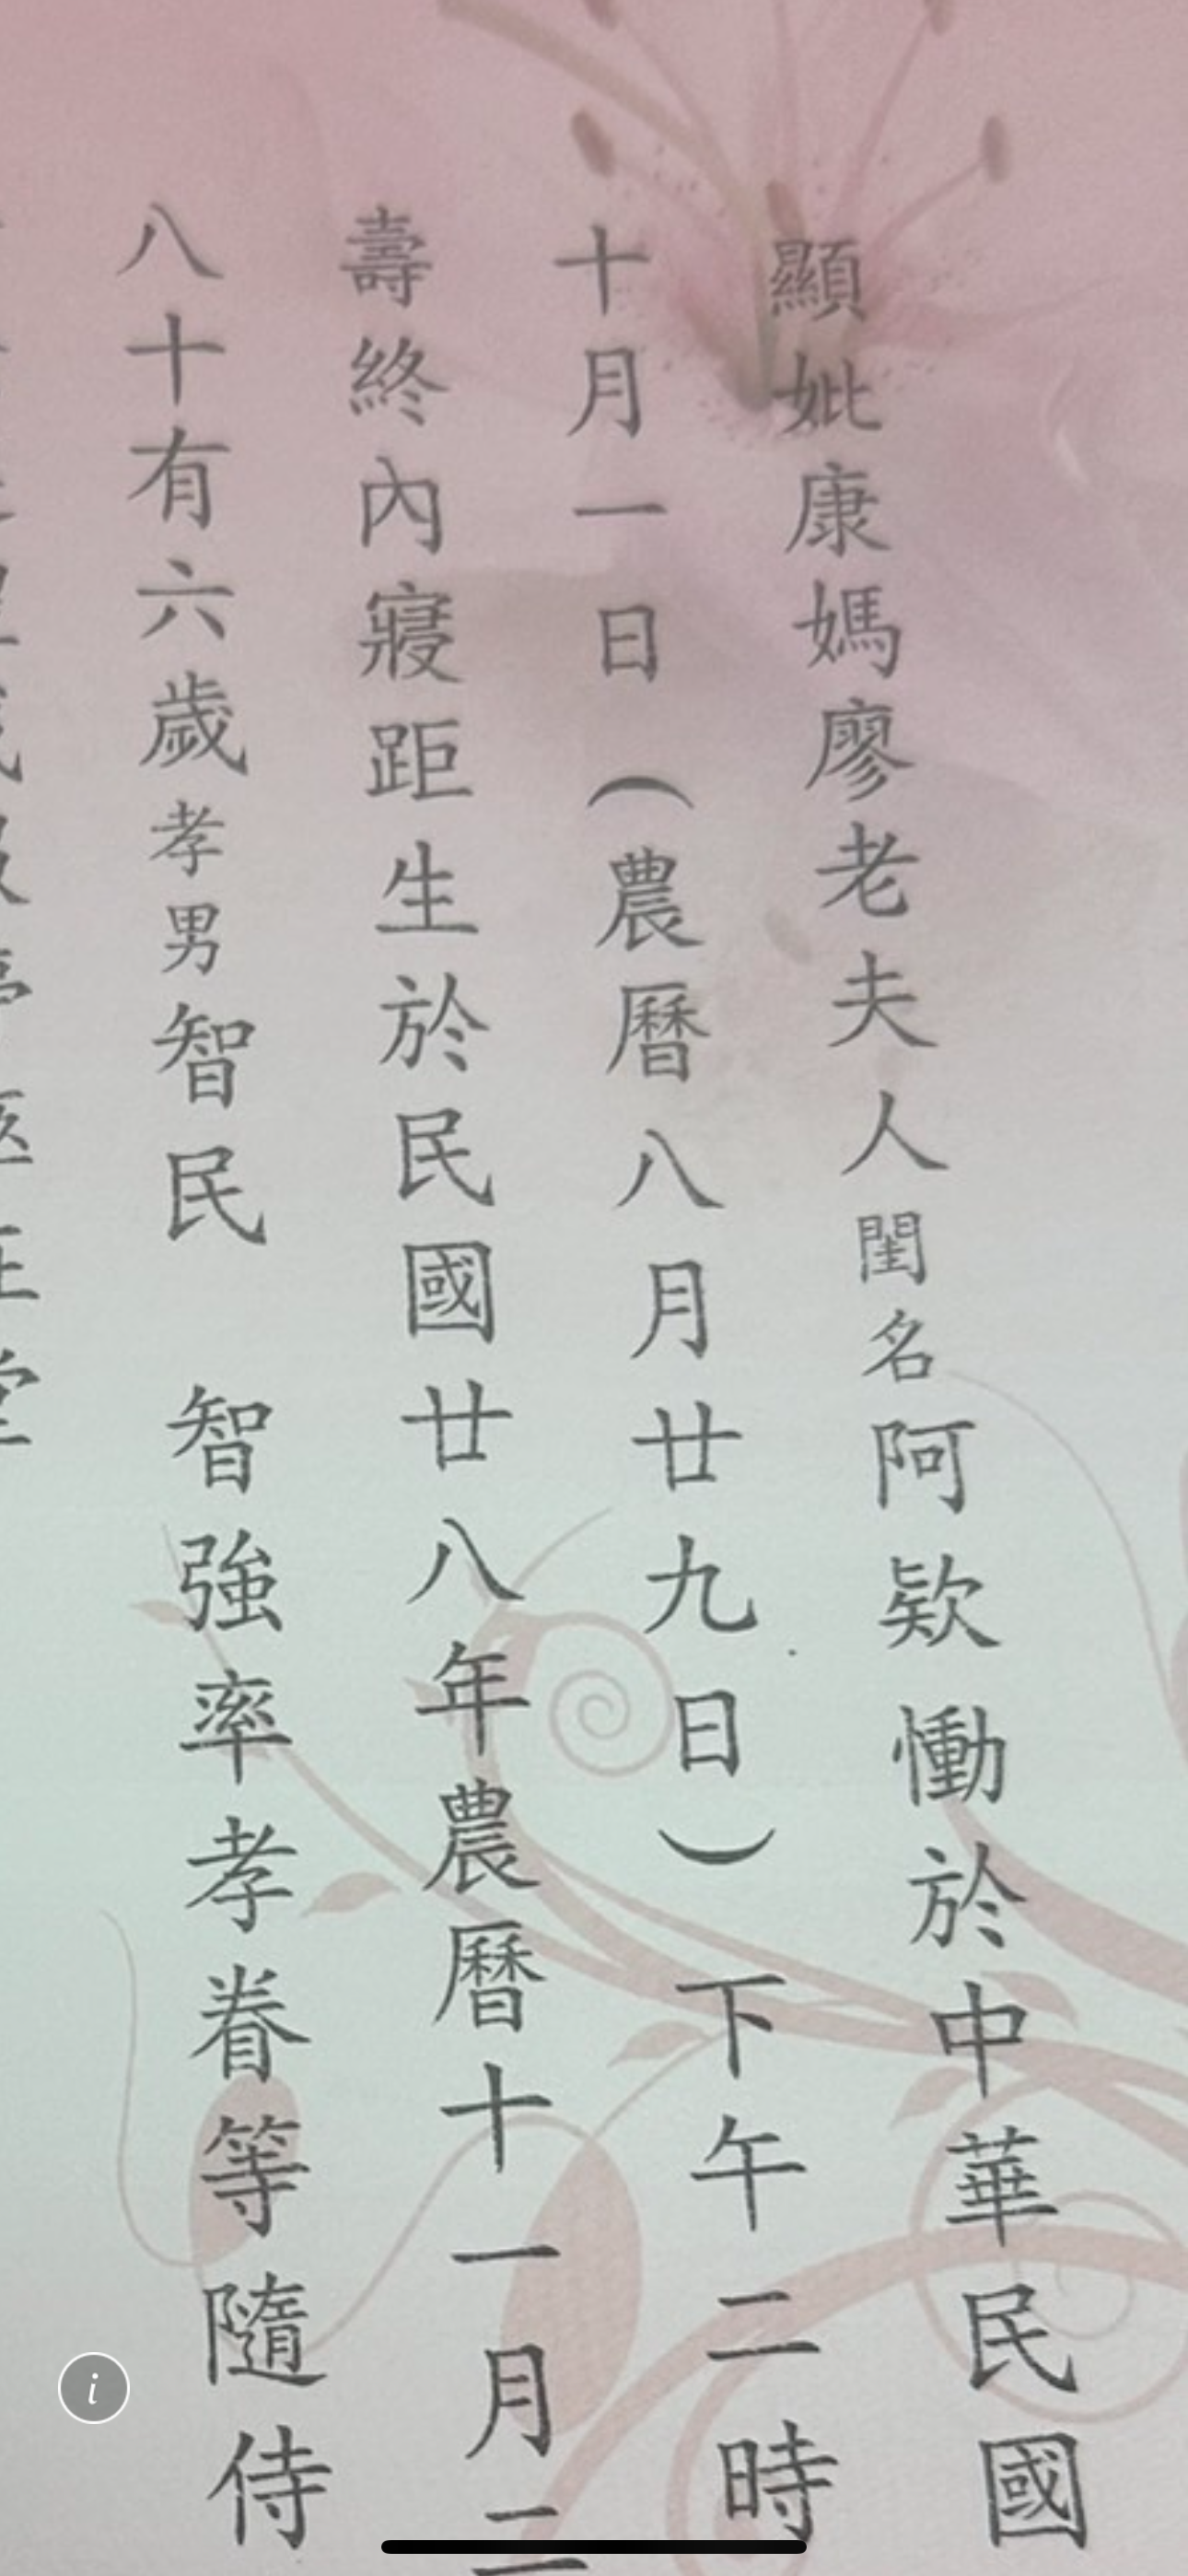 顯妣康媽廖老夫人閨名阿欵慟於中華民國
十月一日（農曆八月廿九日）下午二時
壽終內寢距生於民國廿八年農曆十一月二
八十有六歲孝男智民　智強率孝眷等隨侍